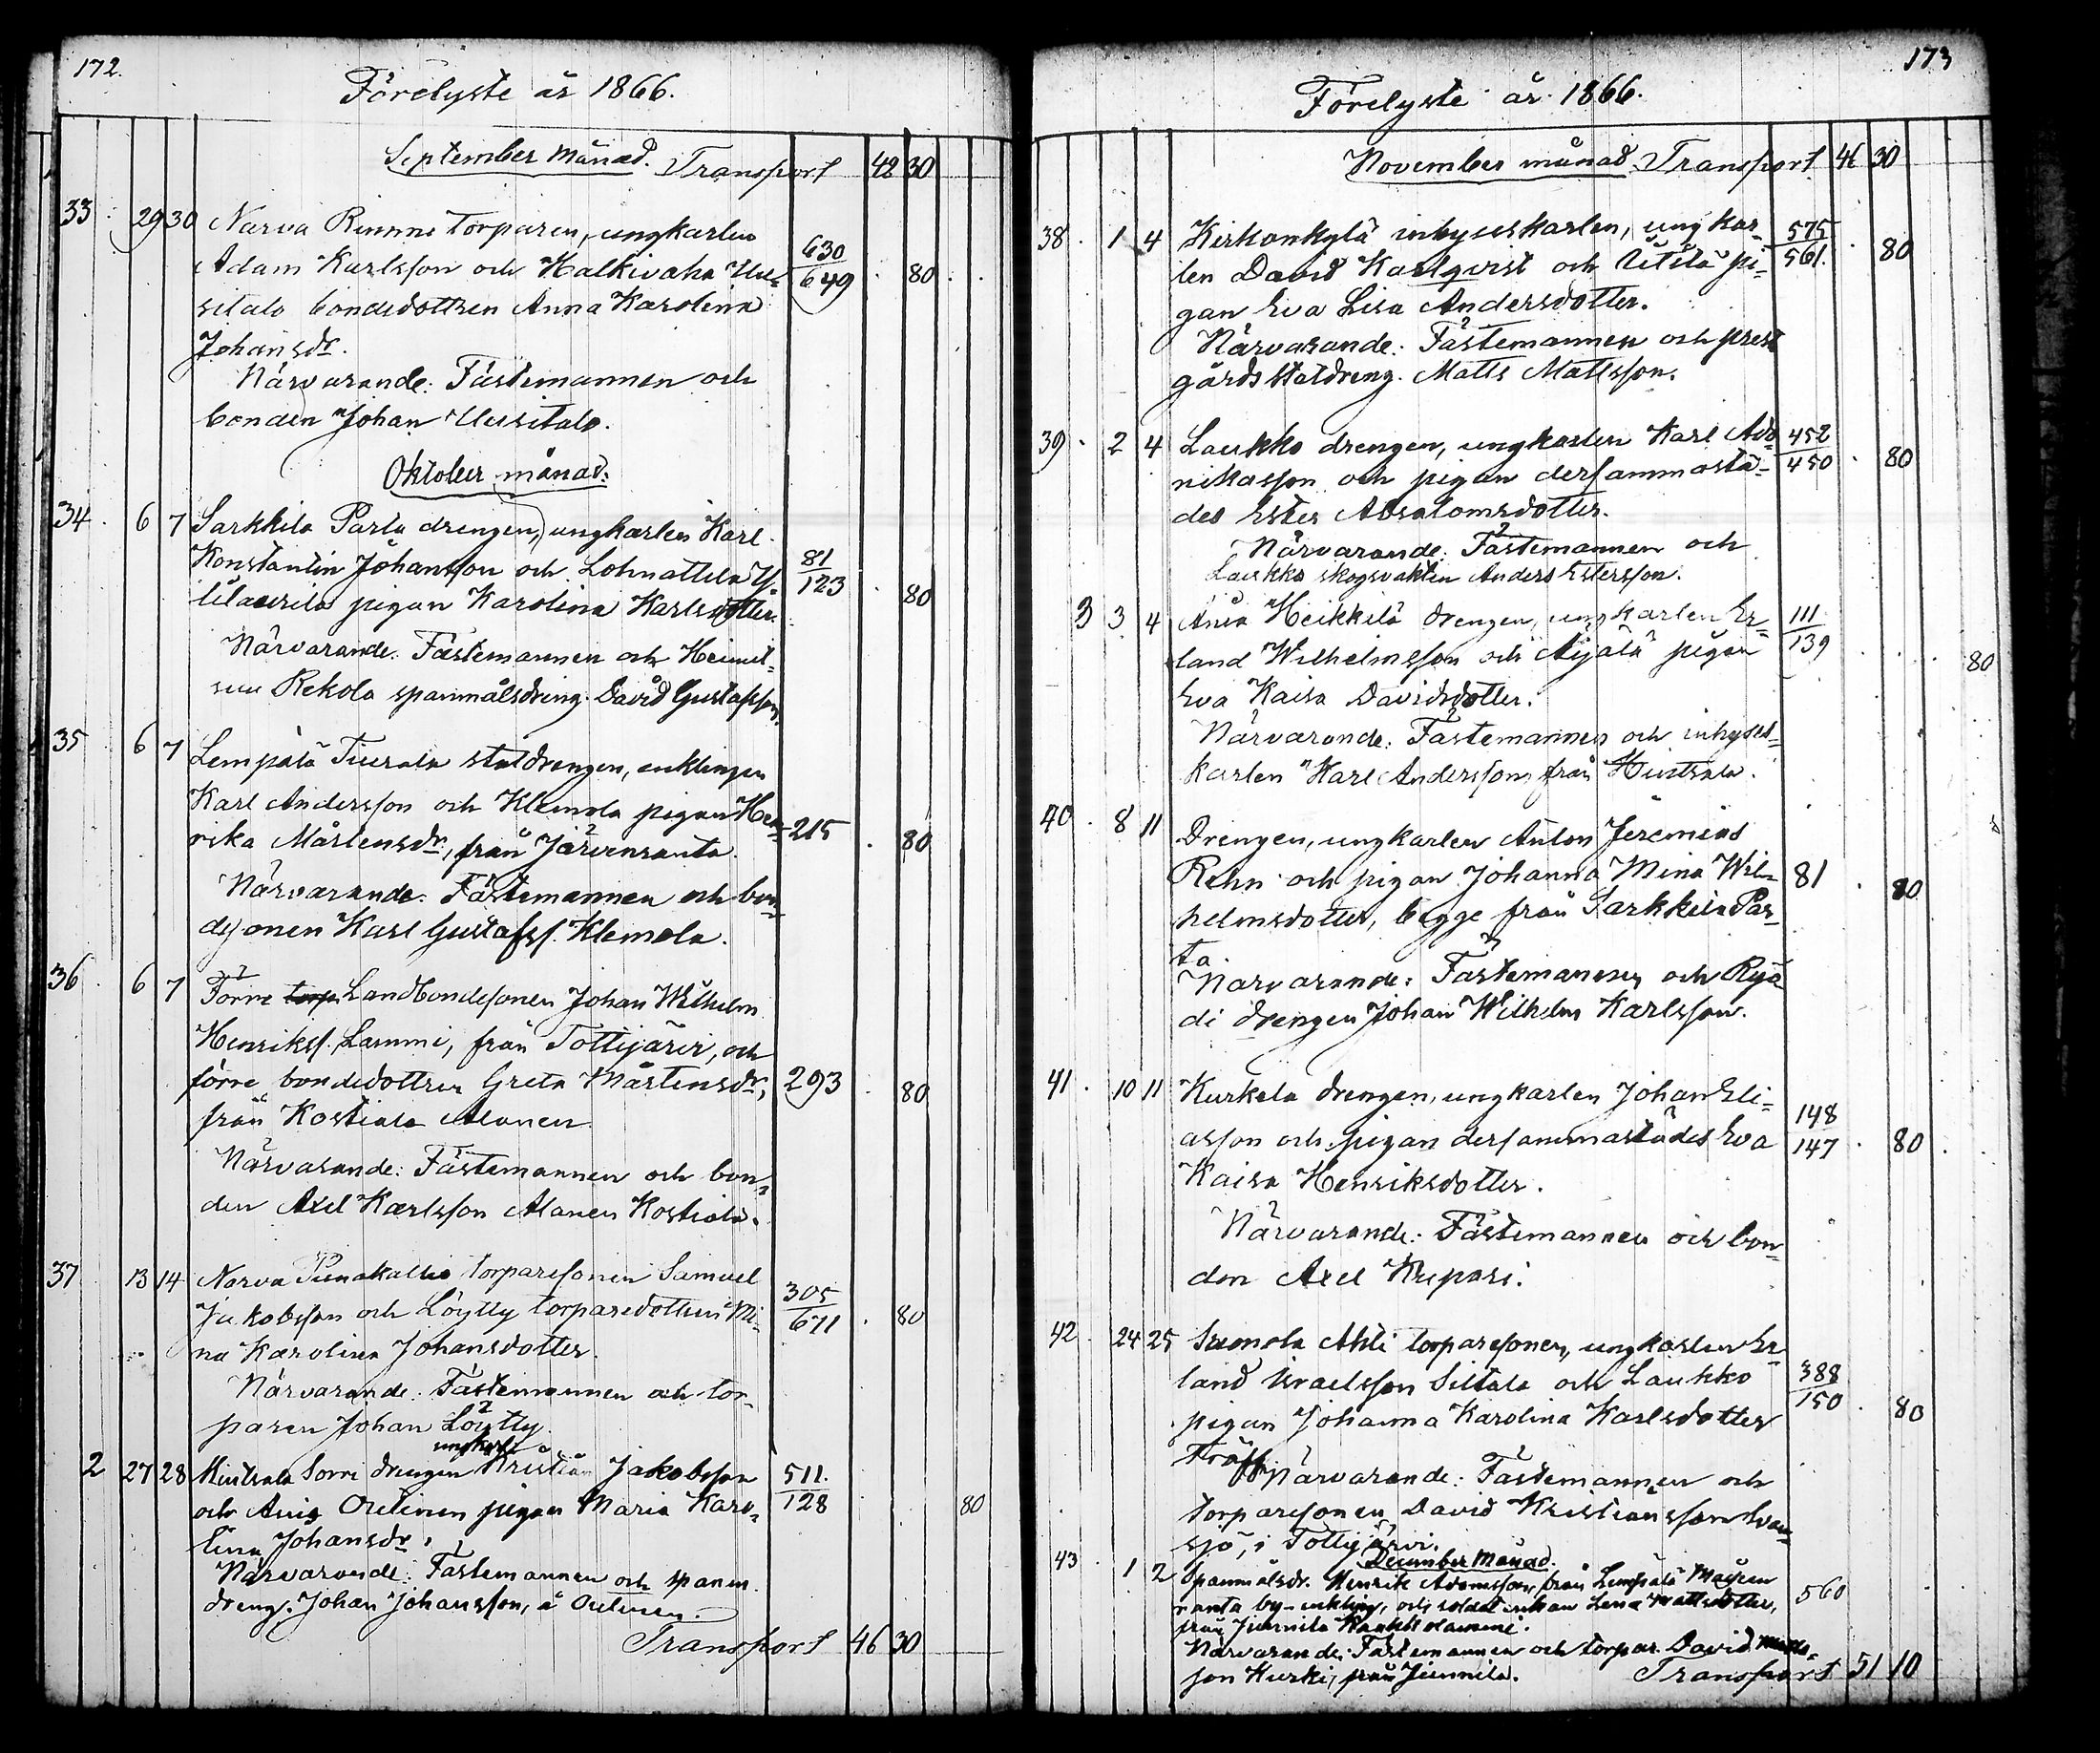 172.
Förelyste år 1866.
September månad. Transport 42 30
33 29 30 Narva Rinne torparen, ungkarlen
Adam Karlsson och Halkivaha Uu- 630/649 80
sitalo bondedottren Anna Karolina
Johansdr.
Närvarande: Fästemannen och
bonden Johan Uusitalo.
Oktober månad:
34 6 7 Sarkkila Parta drengen, ungkarlen Karl
Konstantin Johansson och Lohnattila 81/123 80
pigan Karolina Karlsdotter.
Närvarande: Fästemannen och
Rekola spanmålsdreng. David Gustafsson.
35 6 7 Lempälä Tiurala statdrengen, enklingen
Karl Andersson och Klemola pigan Hen- 215 80
rika Mårtensdr, från Järvenranta.
Närvarande: Fästemannen och bon-
desonen Karl Gustafss. Klemola.
36 6 7 Förre Landbondesonen Johan Wilhelm
Henrikss. Lammi, från Tottijärvi, och
förre bondedottren Greta Mårtensdr, 293 80
från Kostiala Alanen
Närvarande: Fästemannen och bon-
den Axel Karlsson Alanen Kostiala.
37 13 14 Narva Punakallio torparesonen Samuel
Jakobsson och Löytty torparedottren Mi- 305/671 80
na Karolina Johansdotter.
Närvarande: Fästemannen och tor-
paren Johan Löytty.
ungkarl.
2 27 28 Huitsala Sorri drengen Kristian Jakobsson 511./128
och Anis Ontinen pigan Maria Karo- 80
lina Johansdr.
Närvarande: Fästemannen och spanm.
dreng. Johan Johansson, å
Transport 46 30
173
Förelyste år 1866.
November månad. Transport 46 30
38 1 4 Kirkonkylä inhyseskarlen, ungkar- 575/561. 80
len David Karlqvist och Utula pi-
gan Eva Lisa Andersdotter.
Närvarande: Fästemannen och prest
gårds statdreng. Matts Mattsson.
39 2 4 Laukko drengen, ungkarlen Karl Ado- 452/450 80
nikasson och pigan dersammastä-
des Ester Absalomsdotter.
Närvarande: Fästemannen och
Laukko skogsvakten Anders Estersson.
3 3 4 Anis Heikkilä drengen, ungkarlen Er- 111/139
land Wilhelmsson och Äijälä pigan 80
Eva Kaisa Davidsdotter.
Närvarande: Fästemannen och inhyses-
karlen Karl Andersson från Huitsala.
40 8 11 Drengen, ungkarlen Anton Jeremias
Rehn och pigan Johanna Mina Wil- 81 80
helmsdotter, begge från Sarkkila Par-
ta.
Närvarande: Fästemannen och Rya
di drengen Johan Wilhelm Karlsson.
41 10 11 Kurkela drengen, ungkarlen Johan Eli-
asson och pigan dersammastädes Eva 148/147 80
Kaisa Henriksdotter.
Närvarande: Fästemannen och bon-
den Axel Krupari.
42 24 25 Suomela Ahti torparesonen, ungkarlen Er-
land Israelsson Siltala och Laukko 388/150 80
pigan Johanna Karolina Karlsdotter
Träff.
Närvarande: Fästemannen och
torparesonen David Kristiansson
sjö, i Tottijärvi.
December Månad.
43 1 2 Spanmålsdr. Henrik Adamsson, från Lempälä
ranta by enkling, och soldat enkan Lena Mattsdotter, 560
från Jumnila
Närvarande: Fästemannen och torpar. David Matts-
son Kurki, från Jumnila. Transport 51 10